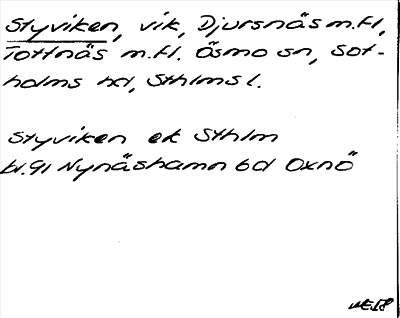 Styviken, vik, Djursnäs m.fl,
Tottnäs m.fl. Ösmo sn, Sot-
holms hd, Sthlms l.
Styviken ek Sthlm
bl.91 Nynäshamn 6d Oxnö